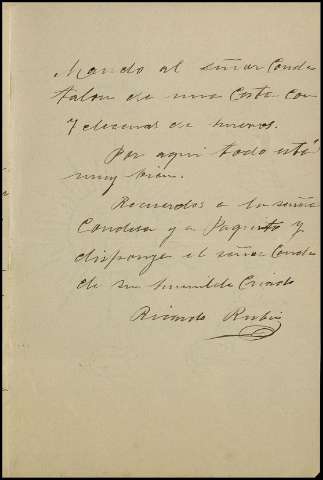 Mando al señor Conde
talon de una cesta con
7 decenas de huevos.
Por aqui todo está
muy bien.
Recuerdos a la señora
Condesa y a Paquito y
disponga el señor Conde
de su humilde Criado
Ricardo Rubio